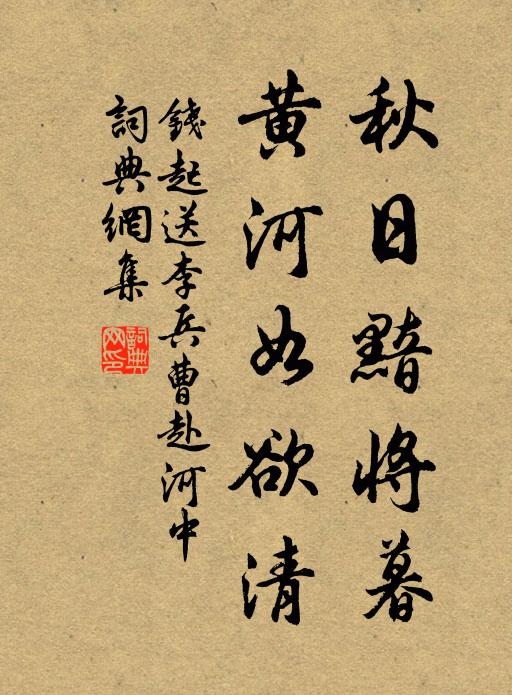 秋日黯將暮
黃河如欲清
錢起送李兵曹赴河中
詞典網集
詞典网印